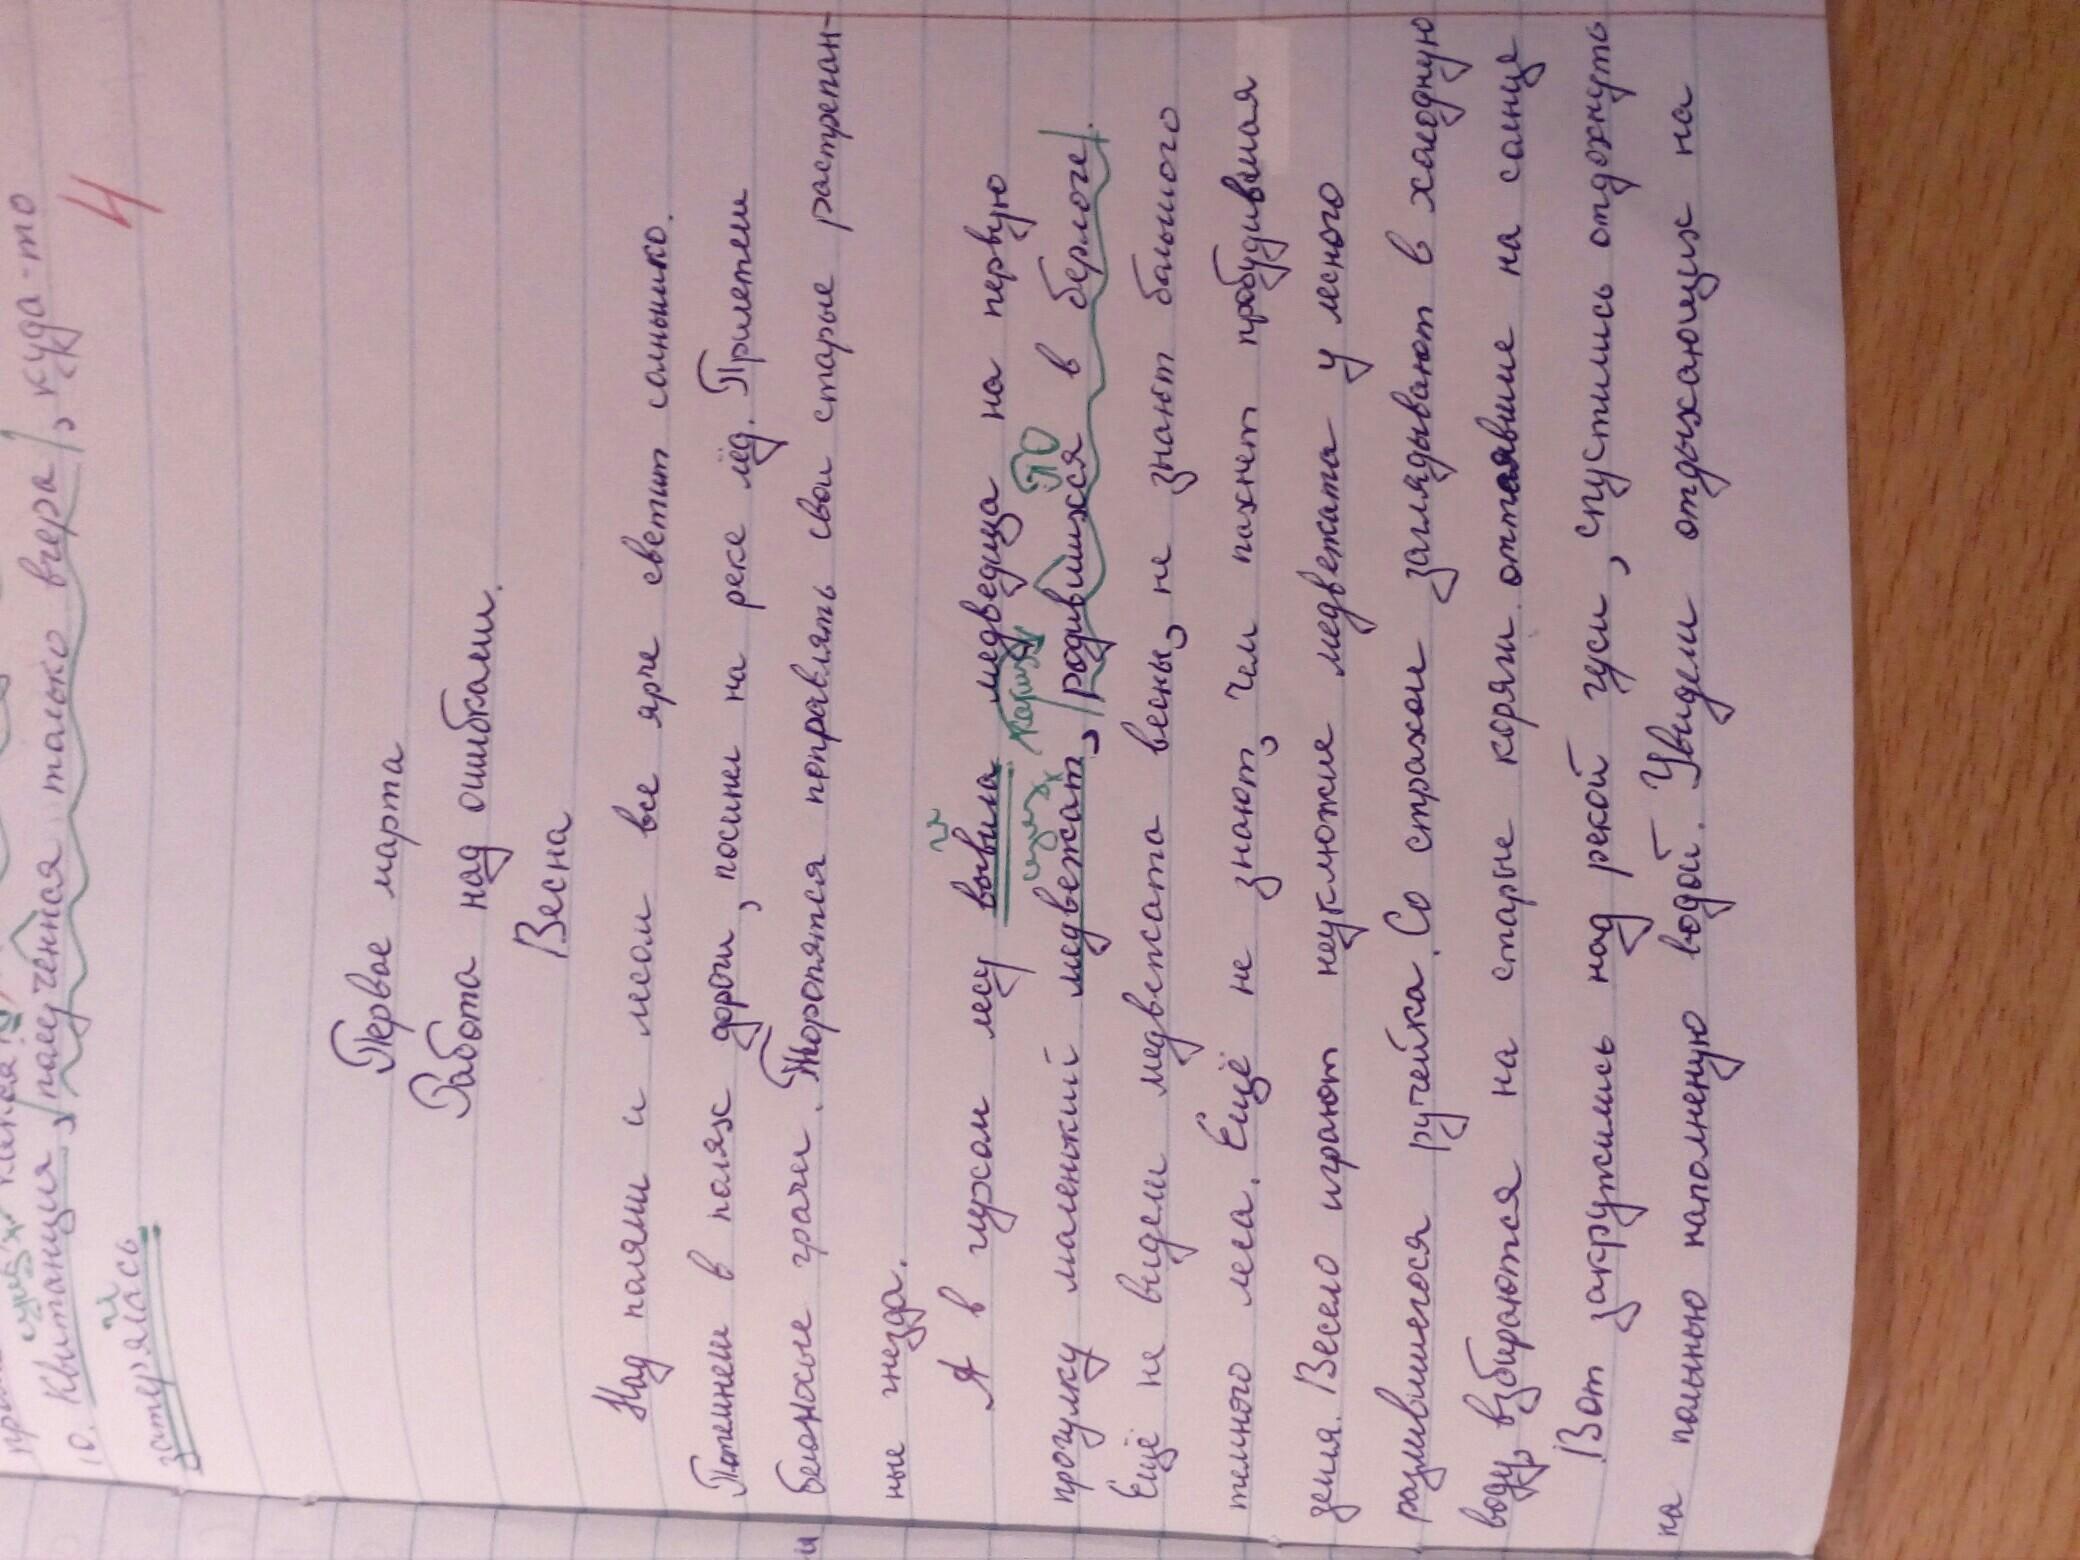 10. Квитанция, |полученная только вчера|, куда-то
затерялась
4
Первое марта
Работа над ошибками.
Весна
Над полями и лесом все ярче светит солнышко.
Потемнели в полях дороги, посинел на реке лёд. Прилетели
белоносые грачи. Торопятся поправлять свои старые растрепан-
ные гнезда.
А в глухом лесу вывила медведица на первую
прогулку маленький медвежат, |родившихся в берлоге|.
Ещё не видели медвежата весны, не знают большого
темного леса. Ещё не знают, чем пахнет пробудившая
земля. Весело играют неуклюжие медвежата у лесного
разлившегося ручейка. Со страхом заглядывают в холодную
воду, взбираются на старые коряги оттаявшие на солнце
Вот закружились над рекой гуси, спустились отдохнуть
на полынью наполненую водой. Увидели отдыхающих на